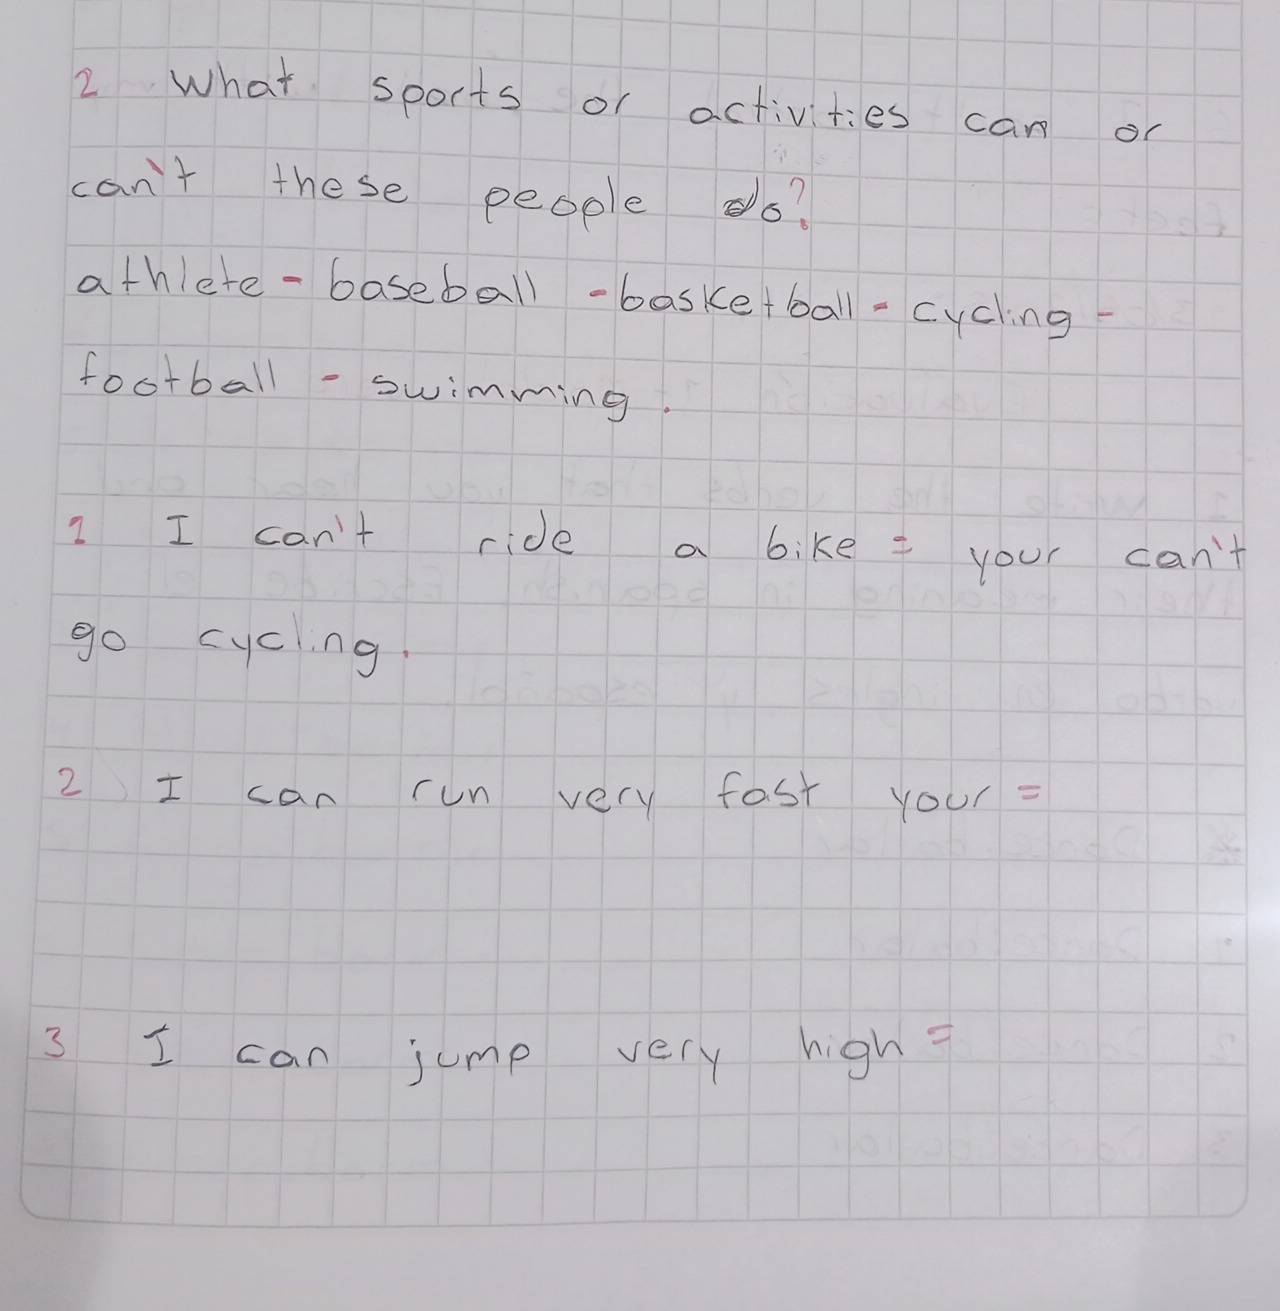 2 What sports or activities can or
can't these people do?
athlete - baseball - basketball - cycling -
football - swimming.
1 I can't ride a bike = your can't
go cycling.
2 I can run very fast your =
3 I can jump very high =